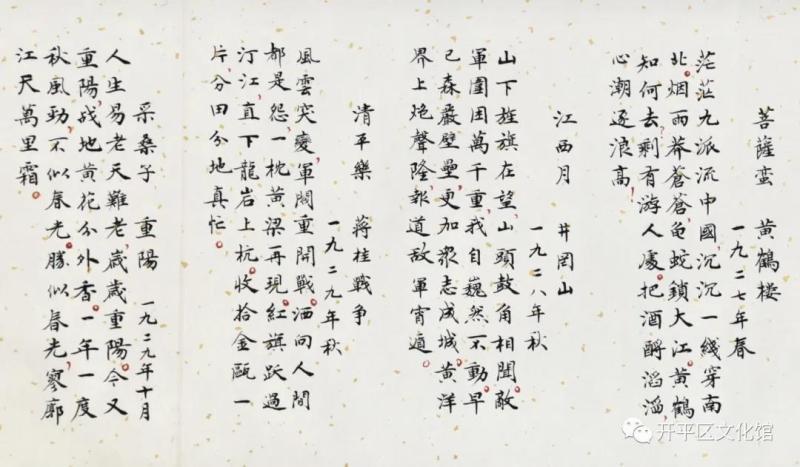 菩薩蛮 黃鶴楼
一九二七年春
茫茫九派流中國，沉沉一綫穿南
北。烟雨莽蒼蒼，龟蛇鎖大江。黃鶴
知何去，剩有游人處。把酒酹滔滔，
心潮逐浪高。
江西月 井岡山
一九二八年秋
山下旌旗在望，山頭鼓角相聞。敵
軍圍困萬千重，我自巍然不動。早
已森嚴壁壘，更加衆志成城。黃洋
界上炮聲隆，報道敵軍宵遁。
清平樂 蔣桂戰爭
一九二九年秋
風雲突變，軍閥重開戰。洒向人間
都是怨，一枕黃粱再現。紅旗跃過
汀江，直下龍岩上杭。收拾金甌一
片，分田分地真忙。
采桑子 重陽 一九二九年十月
人生易老天難老，歲歲重陽。今又
重陽，战地黃花分外香。一年一度
秋風勁，不似春光。勝似春光，寥廓
江天萬里霜。
开平区文化馆